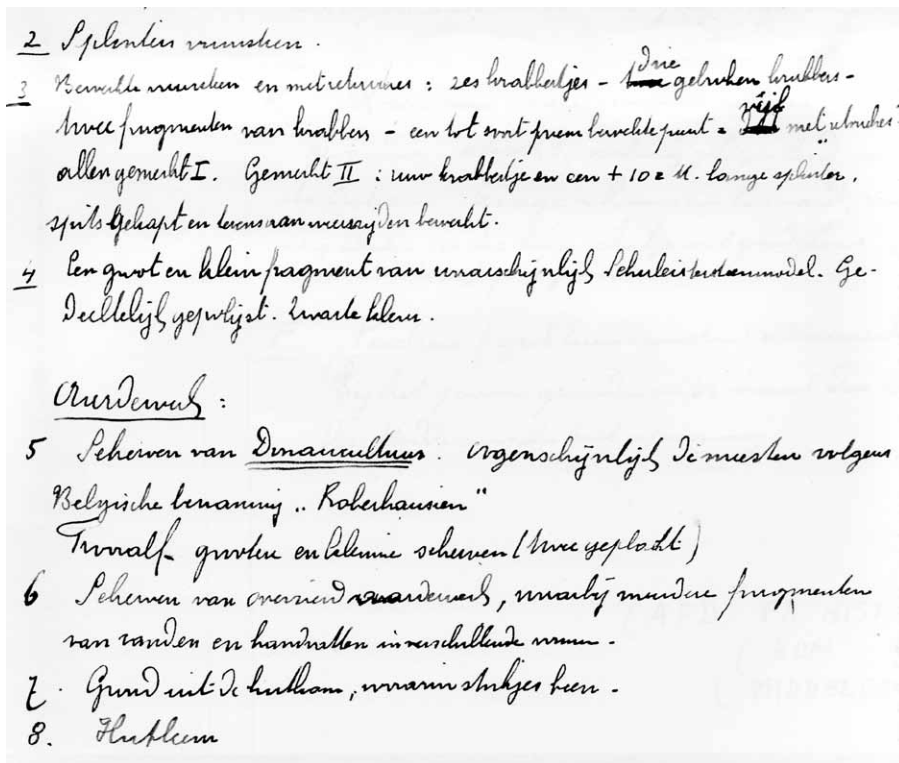 2 Splenters vuursteen.
3 Bewerkte vuursteen en met retouches : zes krabbertjes – drie gebroken krabbers –
twee fragmenten van krabbers – een tot soort priem bewerkte punt = vijf met retouches
allen gemerkt I. Gemerkt II : een krabbertje en een + 10 c.M. lange splinter,
spits gekapt en weerszijden bewerkt.
4 Een groot en klein fragment van waarschijnlijk Schuleistensteenmodel. Ge-
deeltelijk gepolijst. Zwarte kleur.
Aardewerk :
5 Scherven van Donaucultuur. Oogenschijnlijk de meesten volgens
Belgische benaming „Robenhausien"
Twaalf groote en kleine scherven (twee geplakt)
6 Scherven van versierd aardewerk, waarbij meerdere fragmenten
van randen en handvatten in verschillende vormen.
7. Grond uit de hutkom, waarin stukjes been.
8. Hutleem